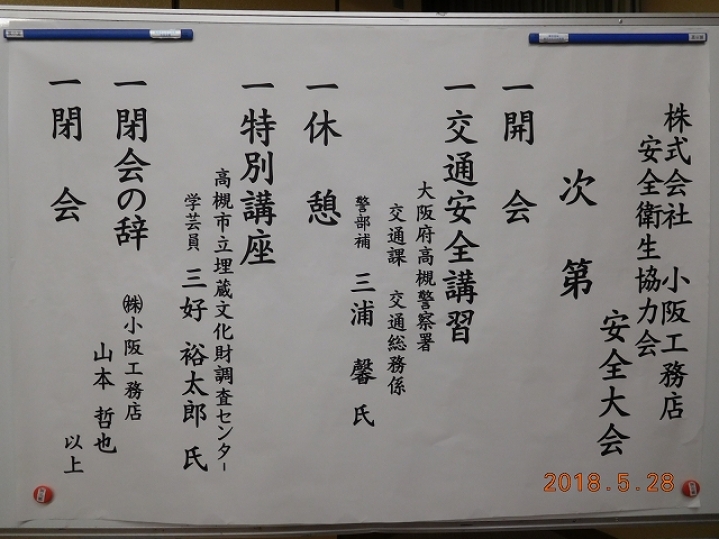 株式会社 小阪工務店
安全衛生協力会
安全大会
次第
一 開会
一 交通安全講習
大阪府高槻警察署
交通課 交通総務係
警部補 三浦 馨 氏
一 休憩
一 特別講座
高槻市立埋蔵文化財調査センター
学芸員 三好 裕太郎 氏
一 閉会の辞
㈱小阪工務店
山本 哲也
一 閉会
以上
2018.5.28